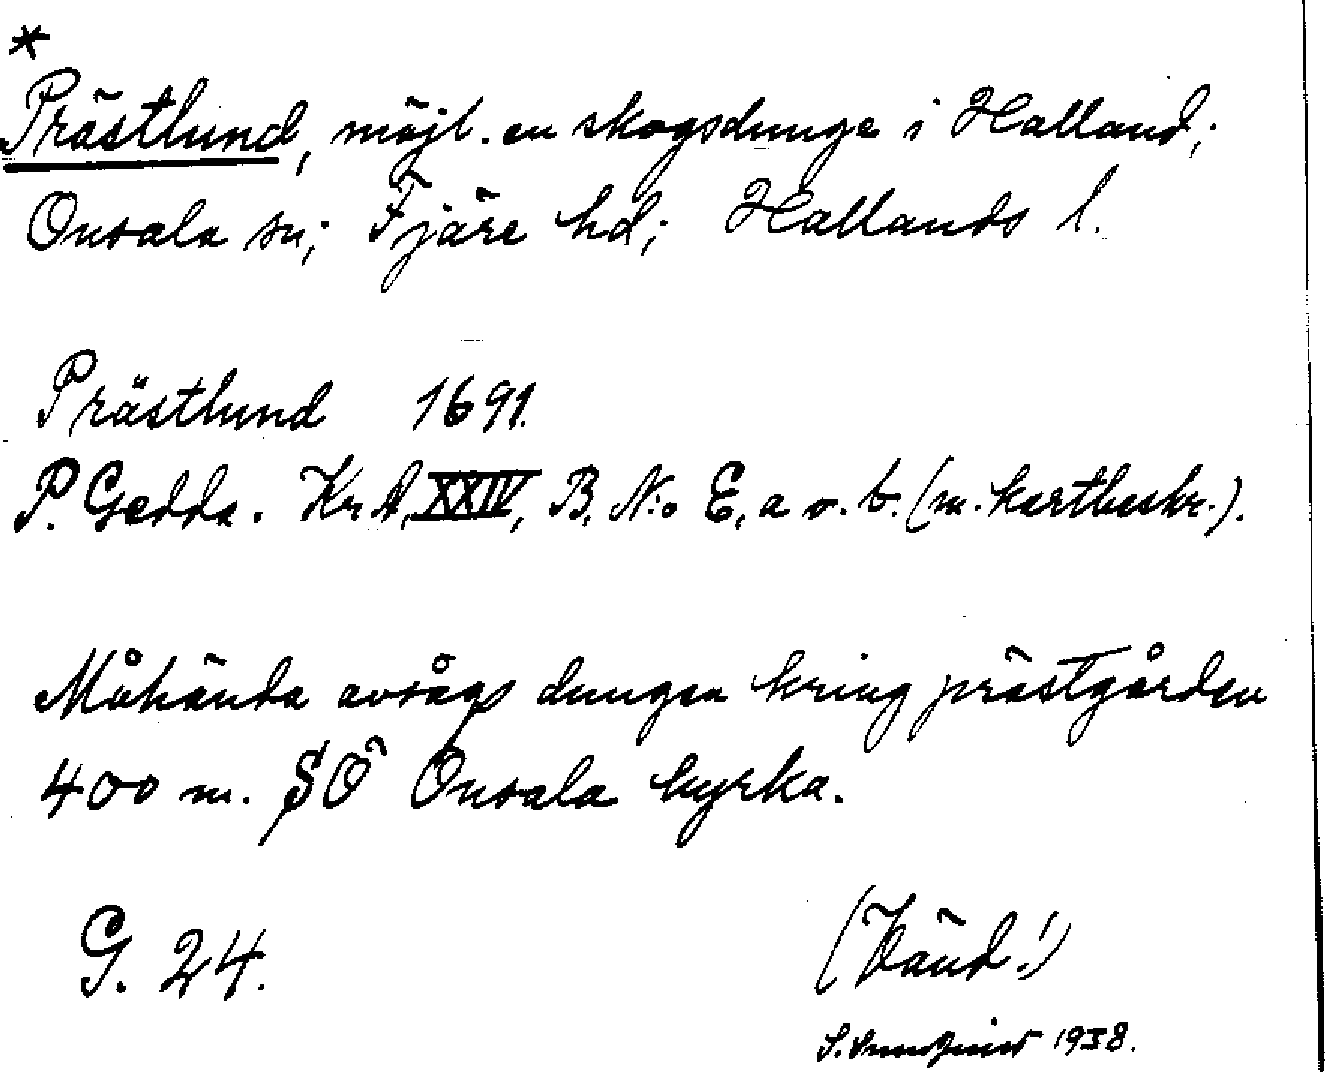 *
Prästlund, möjl. en skogsdunge i Halland;
Onsala sn; Fjäre hd; Hallands l.
Prästlund 1691.
P. Gedda. Kr. A, XXIV, B, N:o E, a o. b. (m. kartbeskr.).
Måhända avsågs dungen kring prästgården
400 m. SÖ Onsala kyrka.
G. 24.
(Vänd!)
S. 1938.